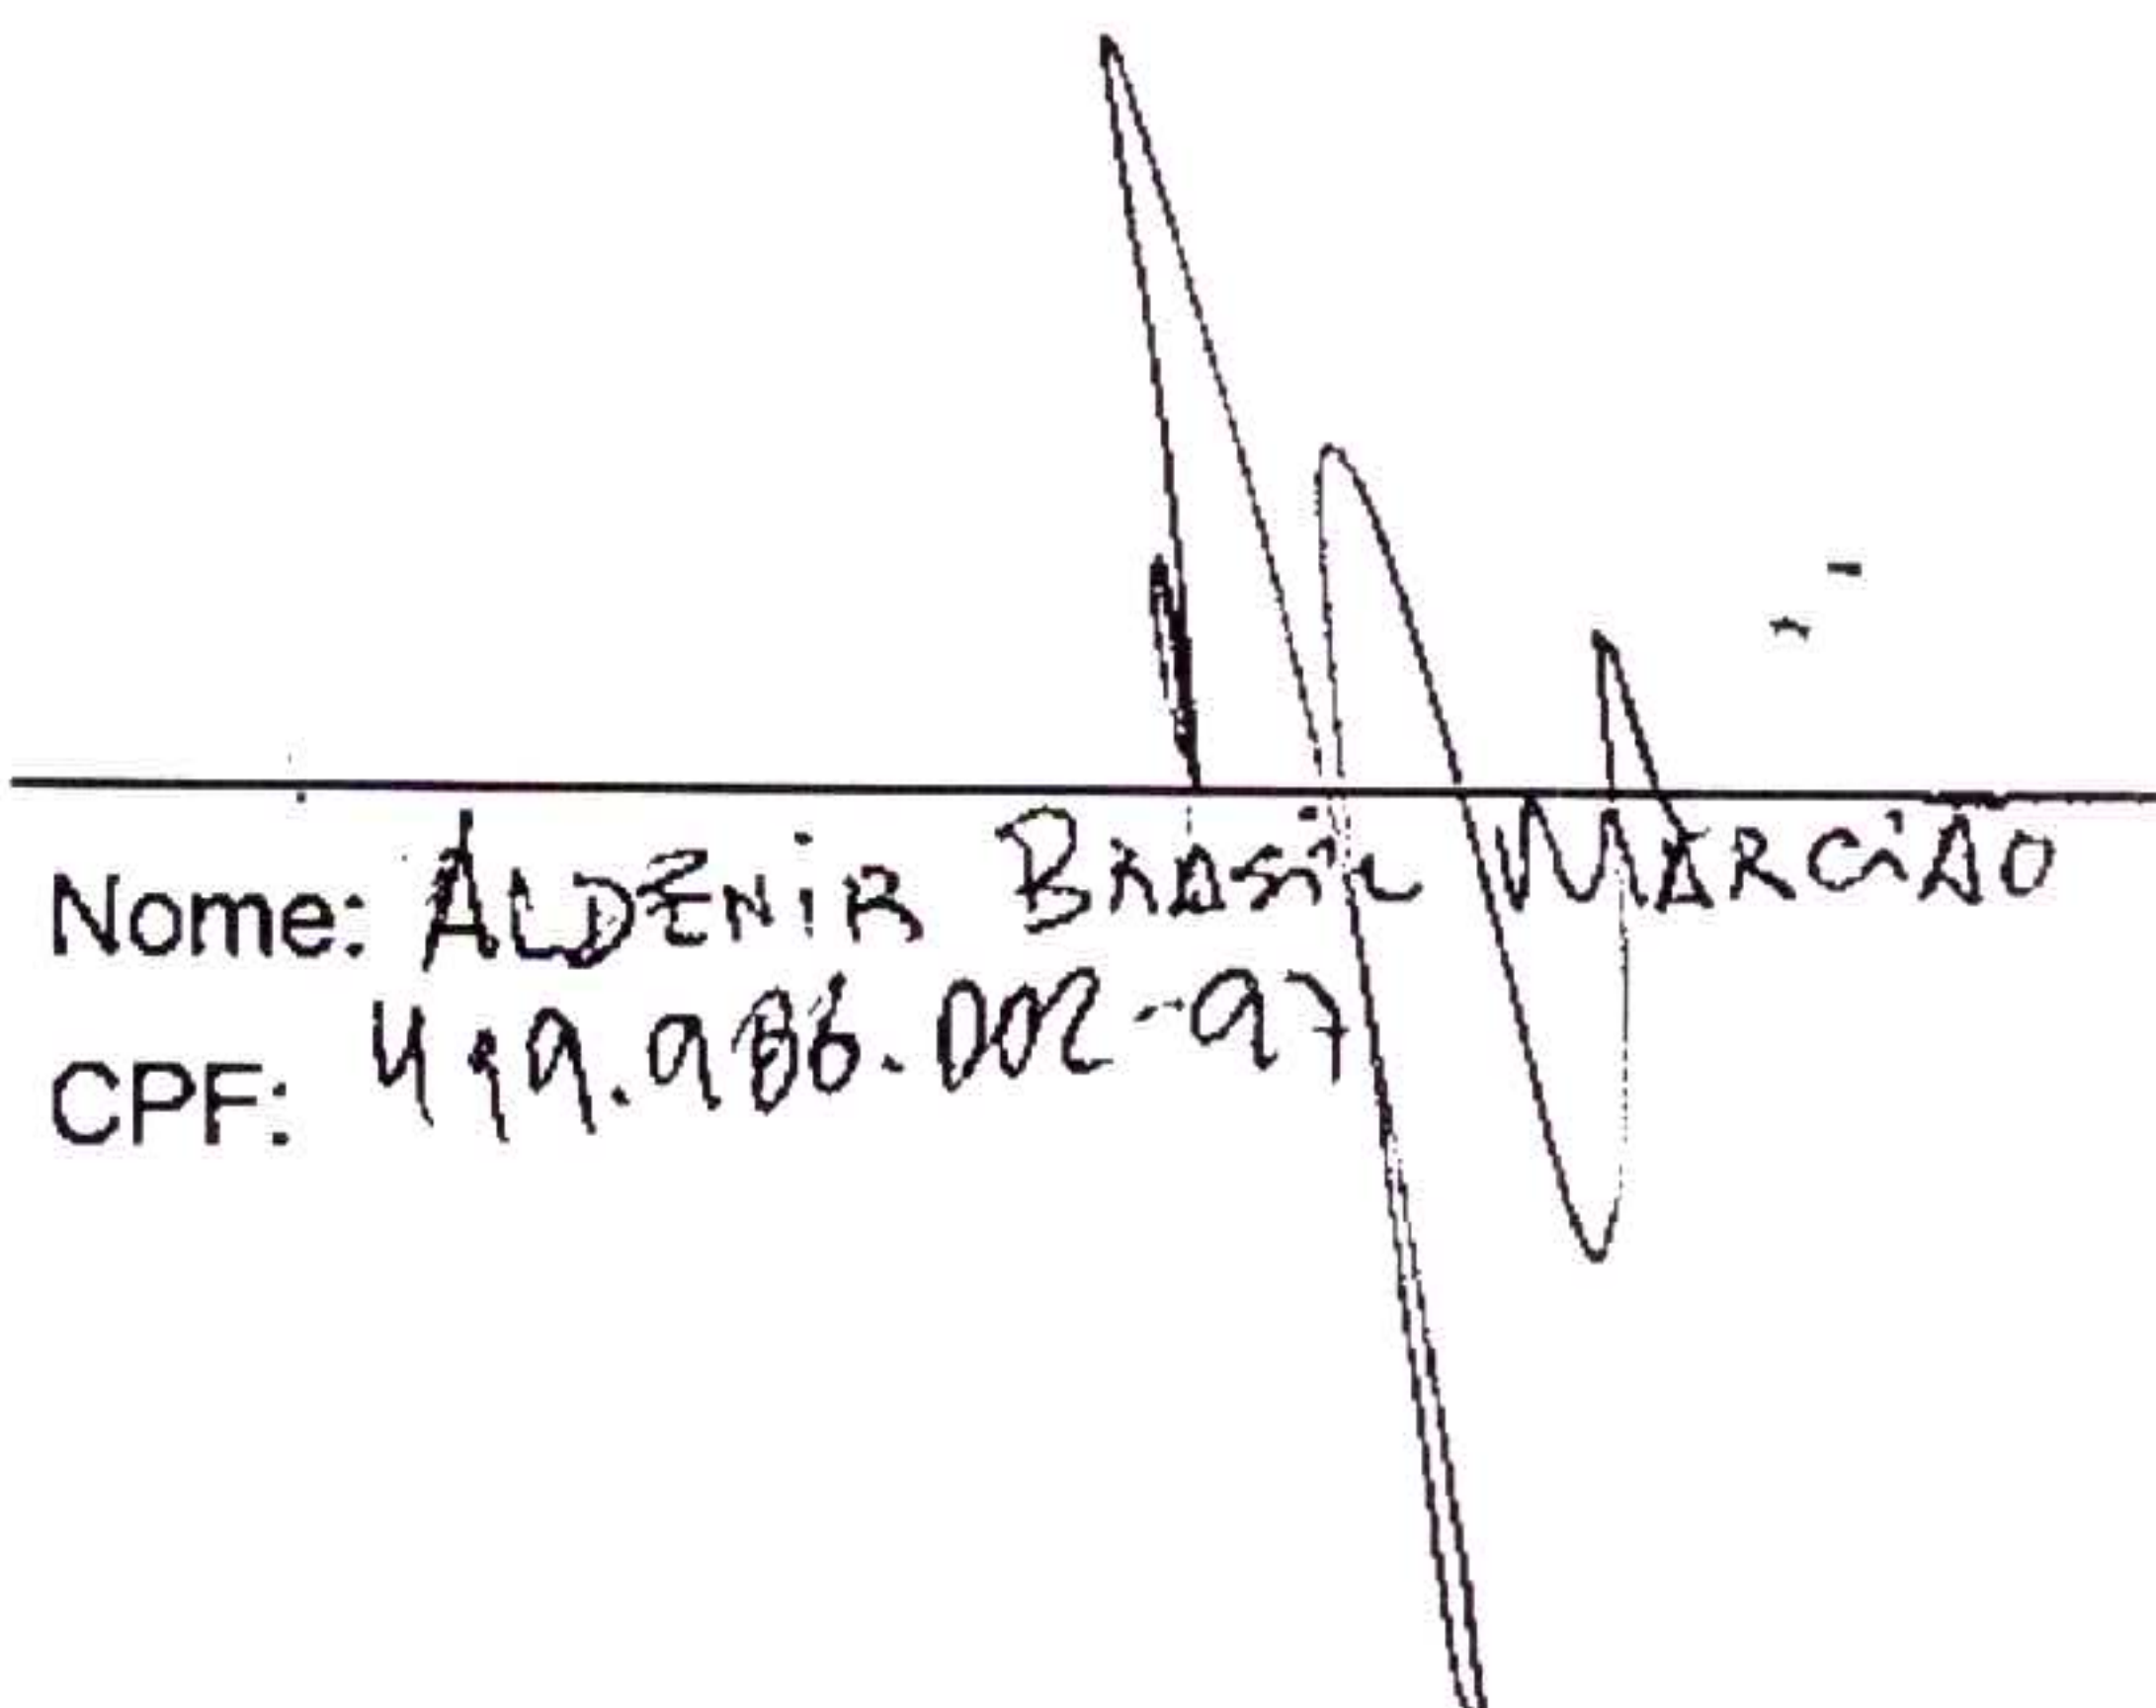 Nome: ALDENIR BRASIL MARCIÃO
CPF: 499.986.002-97